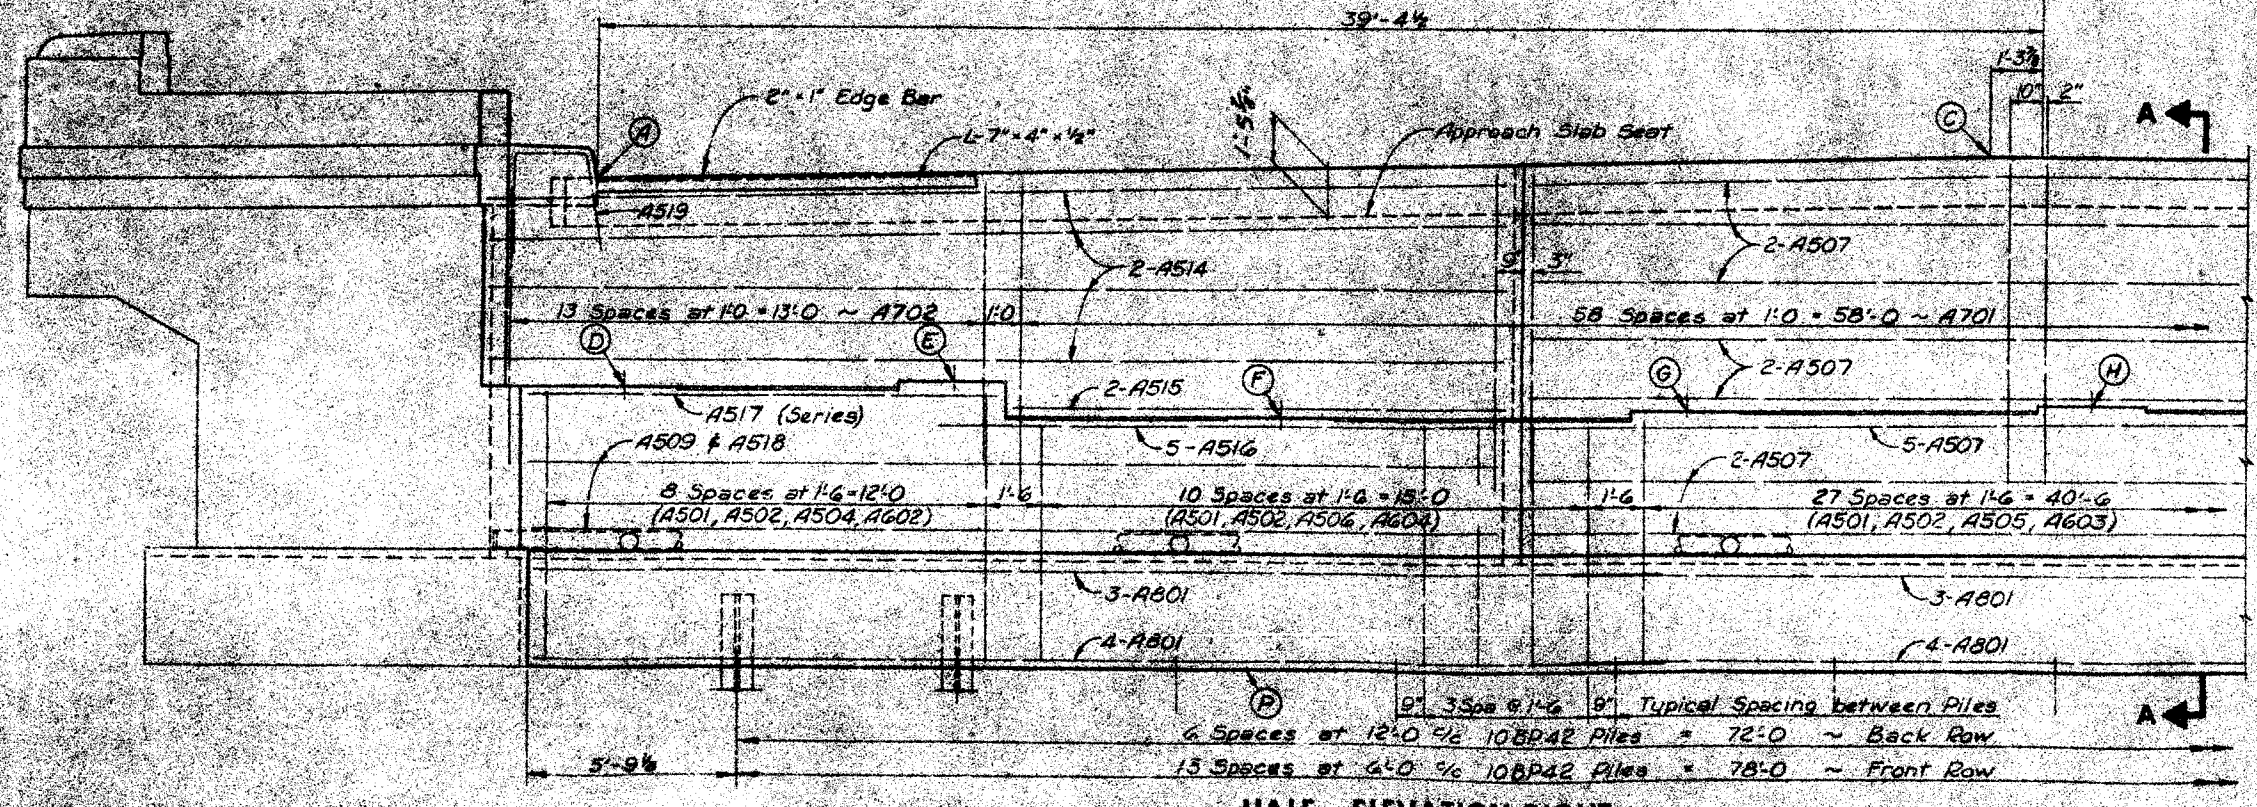 39'-4½
1'-3⅞
10" 2"
2" × 1" Edge Bar
A
L-7" × 4" × ½"
Approach Slab Seat
C
A
A519
2-A507
2-A514
9" 3"
13 Spaces at 1'-0 = 13'-0 ~ A702
1'-0
58 Spaces at 1'-0 = 58'-0 ~ A701
D
E
F
G
H
2-A507
2-A515
A517 (Series)
A509 & A518
5-A516
5-A507
2-A507
8 Spaces at 1'-6 = 12'-0
(A501, A502, A504, A602)
1'-6
10 Spaces at 1'-6 = 15'-0
(A501, A502, A506, A604)
1'-6
27 Spaces at 1'-6 = 40'-6
(A501, A502, A505, A603)
3-A801
3-A801
4-A801
4-A801
P
9" 3 Spa @ 1'-6 9" Typical Spacing between Piles
A
6 Spaces at 12'-0 c/c 10BP42 Piles = 72'-0 ~ Back Row
5'-9⅛
13 Spaces at 6'-0 c/c 10BP42 Piles = 78'-0 ~ Front Row
HALF ELEVATION RIGHT